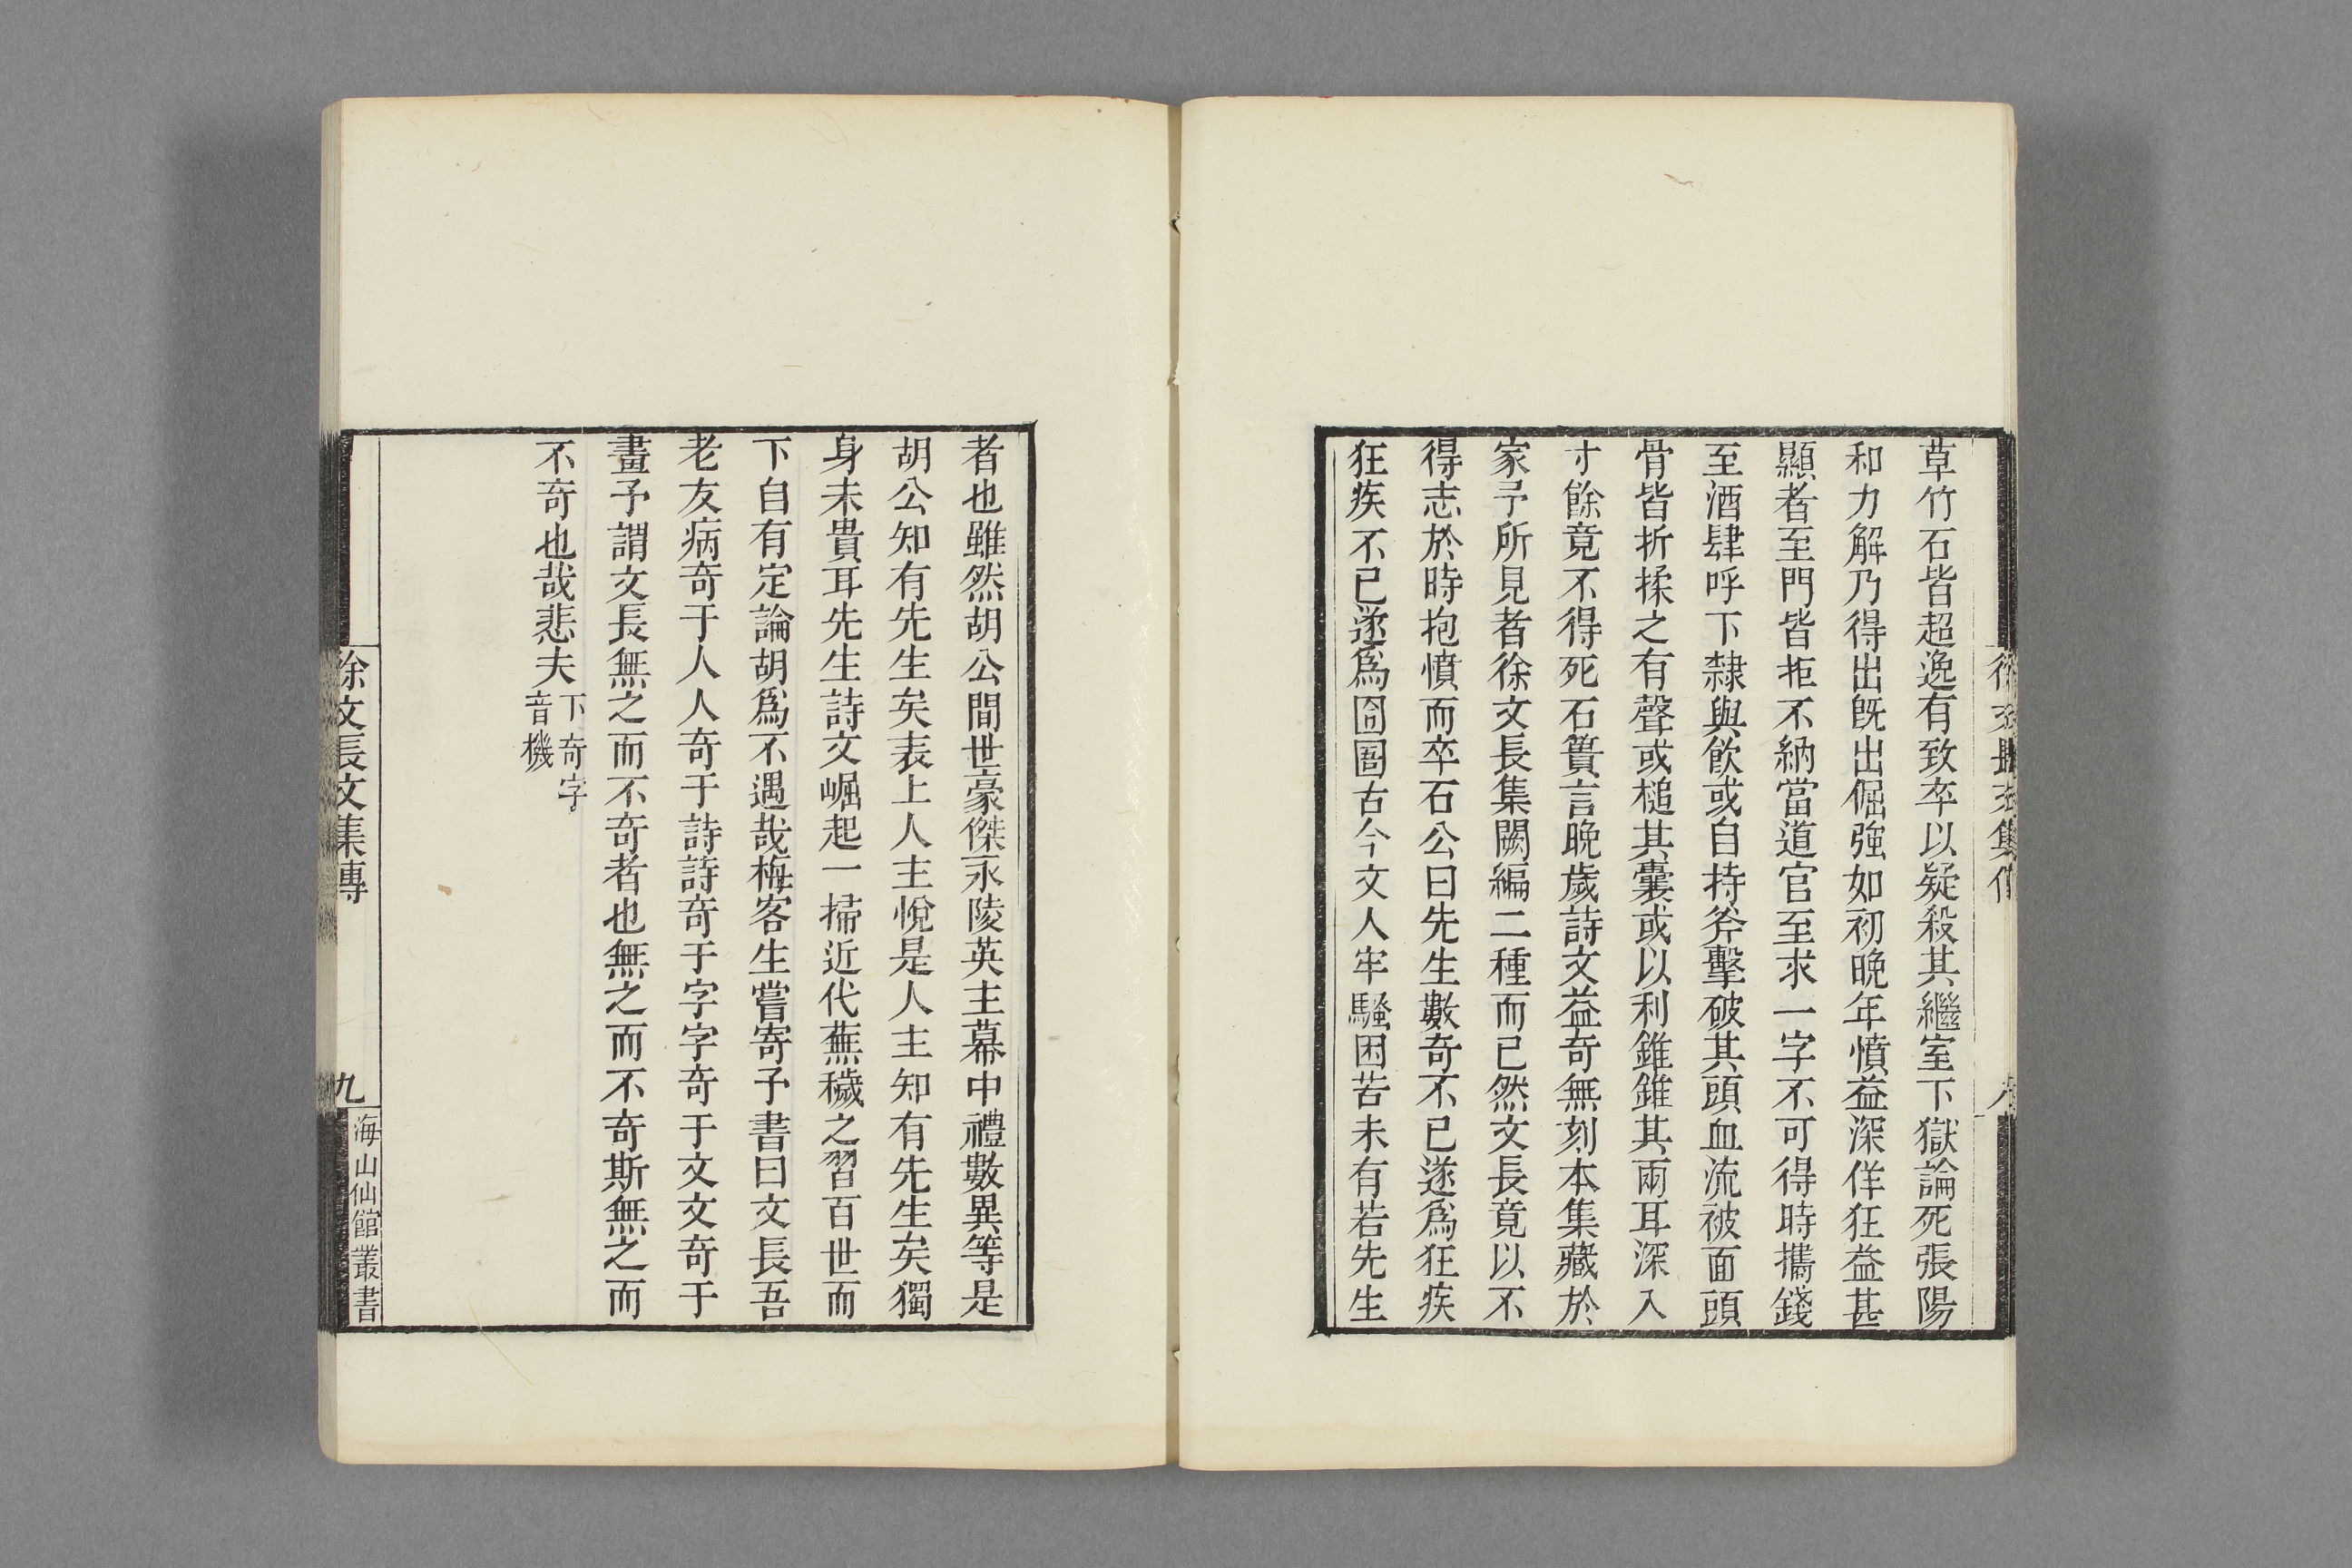 草竹石皆超逸有致卒以疑殺其繼室下獄論死張陽
和力解乃得出既出倔強如初晚年憤益深佯狂益甚
顯者至門皆拒不納當道官至求一字不可得時攜錢
至酒肆呼下隸與飲或自持斧擊破其頭血流被面頭
骨皆折揉之有聲或槌其囊或以利錐錐其兩耳深入
寸餘竟不得死石簣言晚歲詩文益奇無刻本集藏於
家予所見者徐文長集闕編二種而已然文長竟以不
得志於時抱憤而卒石公曰先生數奇不已遂爲狂疾
狂疾不已遂爲囹圄古今文人牢騷困苦未有若先生
者也雖然胡公間世豪傑永陵英主幕中禮數異等是
胡公知有先生矣表上人主悅是人主知有先生矣獨
身未貴耳先生詩文崛起一掃近代蕪穢之習百世而
下自有定論胡爲不遇哉梅客生嘗寄予書曰文長吾
老友病奇于人人奇于詩詩奇于字字奇于文文奇于
畫予謂文長無之而不奇者也無之而不奇斯無之而
不奇也哉悲夫
下奇字
音機
徐文長文集傳
九
海山仙館叢書